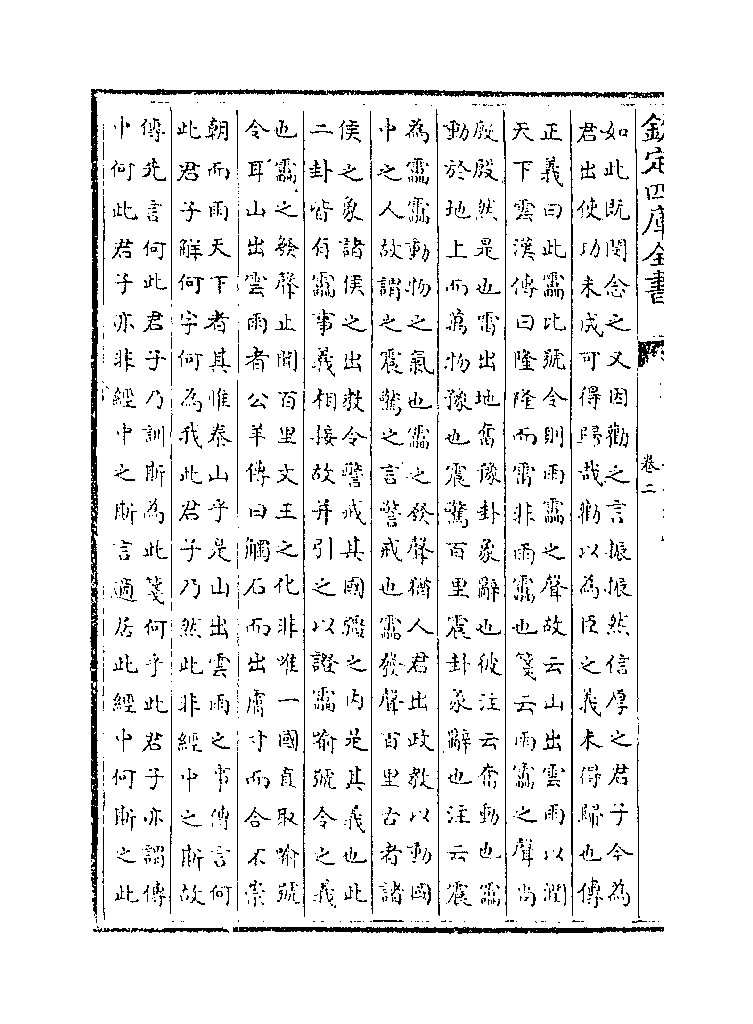 欽定四庫全書
卷二
如此既閔念之又因勸之言振振然信厚之君子今為
君出使功未成可得歸哉勸以為臣之義未得歸也傳
正義曰此靁比號令則雨靁之聲故云山出雲雨以潤
天下雲漢傳曰隆隆而雷非雨靁也箋云雨靁之聲尚
殷殷然是也雷出地奮豫卦象辭也彼注云奮動也靁
動於地上而萬物豫也震驚百里震卦彖辭也注云震
為靁靁動物之氣也靁之發聲猶人君出政教以動國
中之人故謂之震驚之言警戒也靁發聲百里古者諸
侯之象諸侯之出教令警戒其國疆之内是其義也此
二卦皆有靁事義相接故并引之以證靁喻號令之義
也靁之發聲止聞百里文王之化非唯一國直取喻號
令耳山出雲雨者公羊傳曰觸石而出膚寸而合不崇
朝而雨天下者其惟泰山乎是山出雲雨之事傳言何
此君子解何字何為我此君子乃然此非經中之斯故
傳先言何此君子乃訓斯為此箋何乎此君子亦謂傳
中何此君子亦非經中之斯言適居此經中何斯之此